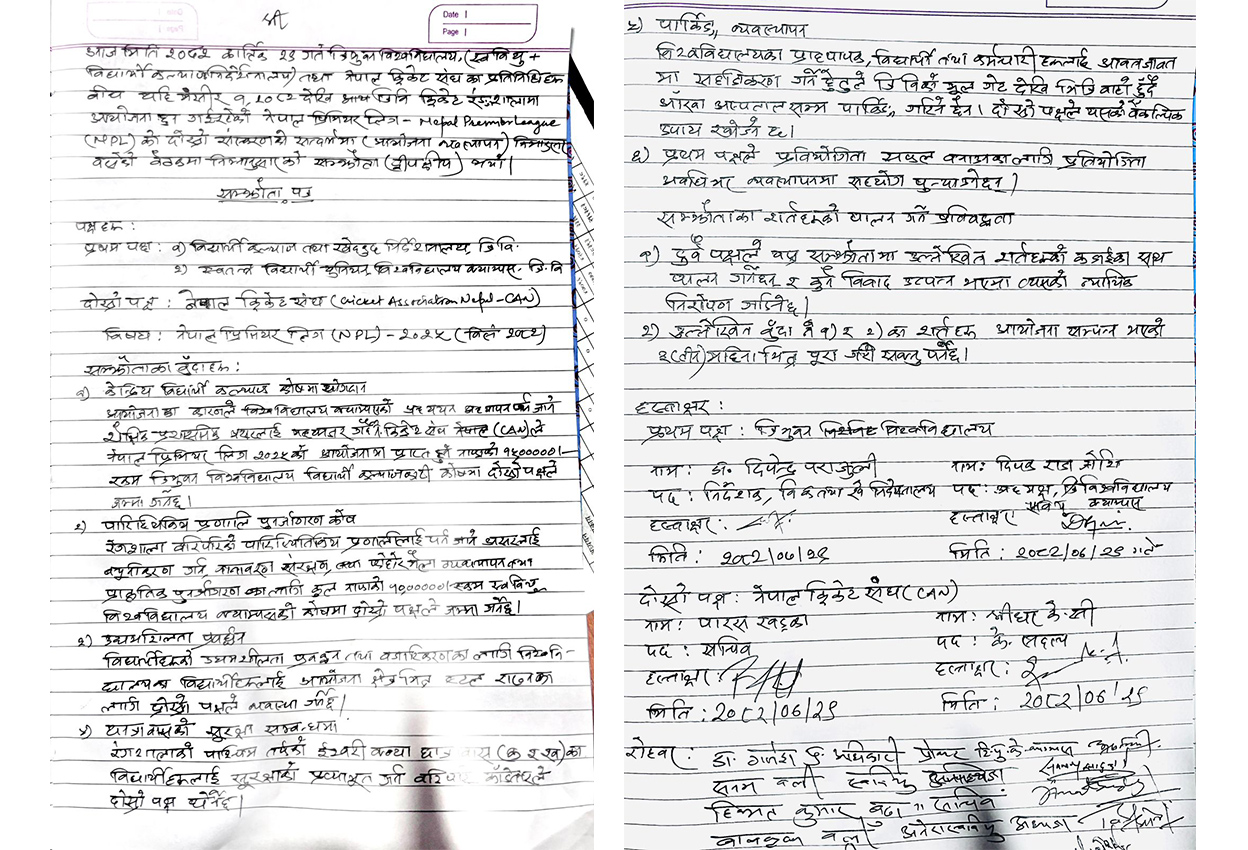 श्री
Date
Page
आज मिति २०८२ कार्तिक २९ गते त्रिभुवन विश्वविद्यालय, (स्ववियु +
विद्यार्थी कल्याण निर्देशनालय) तथा नेपाल क्रिकेट संघका प्रतिनिधिहरू
बीच यहि मंसीर १, २०८२ देखि त्रिवि क्रिकेट रंङ्गशालामा
आयोजना हुन गईरहेको नेपाल प्रिमियर लिग - Nepal Premier League
(NPL) को दोस्रो संस्करणको सन्दर्भमा (आयोजना व्यवस्थापन)
बसेको बैठकमा निम्नानुसारको सम्झौता (द्वीपक्षीय) भयो|
सम्झौता पत्र
पक्षहरू :
प्रथम पक्ष : १) विद्यार्थी कल्याण तथा खेलकुद निर्देशनालय, त्रि.वि.
२) स्वतन्त्र विद्यार्थी युनियन, विश्वविद्यालय क्याम्पस, त्रि.वि
दोस्रो पक्ष : नेपाल क्रिकेट संघ (Cricket Association Nepal-CAN)
विषय: नेपाल प्रिमियर लिग (NPL) - २०२५ (वि.सं २०८२)
सम्झौताका बुँदाहरू :
१) केन्द्रिय विद्यार्थी कल्याण कोषमा योगदान
आयोजनाका कारणले विश्वविद्यालय क्याम्पसको पठनपाठन पर्न जाने
शैक्षिक प्रशासनिक असरलाई गर्न क्रिकेट संघ नेपाल (CAN)ले
नेपाल प्रिमियर लिग २०२५को आयोजनामा प्राप्त हुने १५०००००।-
रकम त्रिभुवन विश्वविद्यालय विद्यार्थी कल्याणकारी कोषमा दोस्रो पक्षले
जम्मा गर्नेछ|
२) पारिस्थितिकीय प्रणालि पुनर्जागरण कोष
रंगशाला वरिपरिको पारिस्थितिकीय प्रणालीलाई पर्न जाने असरलाई
न्यूनीकरण गर्न, वातावरण संरक्षण तथा फोहोरमैला व्यवस्थापन तथा
प्राकृतिक पुनर्जागरणका लागि कुल १००००००।- रकम स्ववियु
विश्वविद्यालय क्याम्पसको कोषमा दोस्रो पक्षले जम्मा गर्नेछ|
३) उद्यमशिलता प्रवर्द्धन
विद्यार्थीहरूको उद्यमशीलता प्रवर्द्धन तथा बजारिकरणका लागि विश्ववि-
द्यालयका विद्यार्थीहरूलाई आयोजना क्षेत्र भित्र स्टल राख्नका
लागि दोस्रो पक्षले व्यवस्था गर्नेछ|
४) छात्रावासको सुरक्षा सम्बन्धमा
रंगशालाको पश्चिम तर्फको ईश्वरी कन्या छात्रावास (क र ख)का
विद्यार्थीहरूलाई सुरक्षाको प्रत्याभूत गर्न
दोस्रो पक्ष
५) पार्किङ्ग व्यवस्थापन
विश्वविद्यालयका प्राध्यापक, विद्यार्थी तथा कर्मचारी हरूलाई आवतजावत
मा सहजिकरण गर्ने हेतुले त्रि.विको मूल गेट देखि हुँदै
आँखा अस्पताल सम्म पार्किङ्ग गरिने छैन। दोस्रो पक्षले यसको वैकल्पिक
उपाय खोज्ने छ।
६) प्रथम पक्षले प्रतियोगिता सफल बनाउनका लागि प्रतियोगिता
अवधिभर व्यवस्थापनमा सहयोग पुर्‍याउनेछन्|
सम्झौताका शर्तहरूको पालना गर्ने प्रतिबद्धता
१) दुवै पक्षले यस सम्झौतामा उल्लेखित शर्तहरूको कडाईका साथ
पालना गर्नेछन् र कुनै विवाद उत्पन्न भएमा त्यसको न्यायिक
निरोपण गरिनेछ|
२) उल्लेखित बुँदा नं १) र २) का शर्तहरू आयोजना सम्पन्न भएको
३(तीन) महिना भित्र पूरा गरी सक्नु पर्नेछ|
हस्ताक्षर :
प्रथम पक्ष : त्रिभुवन विश्वविद्यालय
नाम: डा. दिपेन्द्र पराजुली
नाम: दिपक राज जोशि
पद: निर्देशक, वि.क तथा खे निर्देशनालय
पद: अध्यक्ष, त्रि विश्वविद्यालय
क्याम्पस
हस्ताक्षर:
हस्ताक्षर:
मिति : २०८२/०७/२९
मिति : २०८२/०७/२९ गते
दोस्रो पक्ष: नेपाल क्रिकेट संघ (CAN)
नाम: पारस खड्का
नाम: श्रीधर के.सी
पद : सचिव
पद : के. सदस्य
हस्ताक्षर:
हस्ताक्षर:
मिति : २०८२/०७/२९
मिति: २०८२/०७/२९
रोहवर :